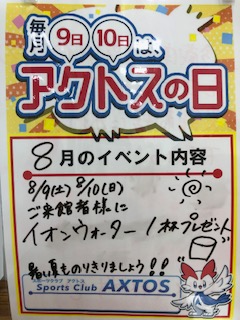 毎月9日10日は、
アクトスの日
8月のイベント内容
8/9(土) 8/10(日)
ご来館者様に
イオンウォーター1杯プレゼント
暑い夏ものりきりましょう!!
スポーツクラブ アクトス
Sports Club AXTOS